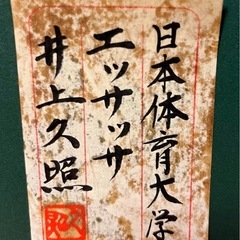 日本体育大学
エッサッサ
井上久照